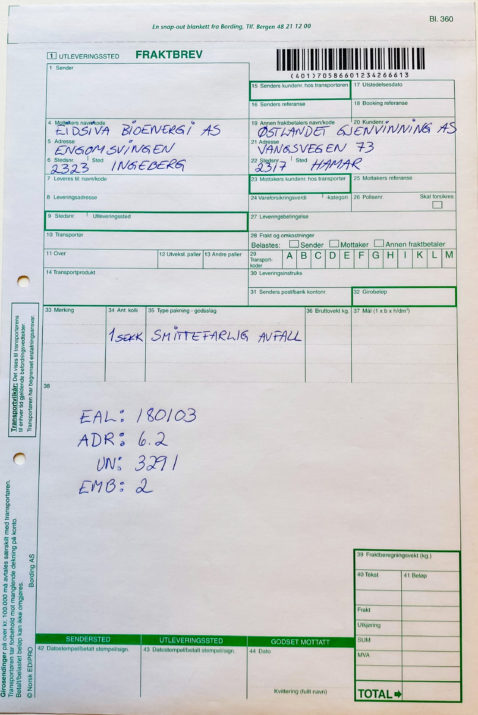 Bl. 360
En snap-out blankett fra Bording, Tlf. Bergen 48 21 12 00
1 UTLEVERINGSSTED FRAKTBREV
(401)70586601234266613
1 Sender
15 Senders kundenr. hos transportøren 17 Utstedelsesdato
16 Senders referanse 18 Booking referanse
4 Mottakers navn/kode 19 Annen fraktbetalers navn/kode 20 Kundenr.
EIDSIVA BIOENERGI AS ØSTLANDET GJENVINNING AS
5 Adresse 21 Adresse
ENGOMSVINGEN VANGSVEGEN 73
6 Stedsnr. Sted 22 Stedsnr. Sted
2323 INGEBERG 2317 HAMAR
7 Leveres til navn/kode 23 Mottakers kundenr. hos transportør 25 Mottakers referanse
8 Leveringsadresse 24 Vareforsikringsverdi -kategori 26 Polisenr. Skal forsikres
9 Stedsnr. Utleveringssted 27 Leveringsbetingelse
10 Transportør 28 Frakt og omkostninger
Belastes: Sender Mottaker Annen fraktbetaler
11 Over 12 Utveksl. paller 13 Andre paller 29 Transport-koder A B C D E F G H I K L M
14 Transportprodukt 30 Leveringsinstruks
31 Senders post/bank kontonr. 32 Girobeløp
33 Merking 34 Ant. kolli 35 Type pakning - godsslag 36 Bruttovekt kg. 37 Mål (l x b x h/dm³)
1 SEKK SMITTEFARLIG AVFALL
38
EAL: 180103
ADR: 6.2
UN: 3291
EMB: 2
Transportvilkår: Det vises til transportørens
til enhver tid gjeldende befordringsvedtekter.
Transportøren har begrenset erstatningsansvar.
Girosendinger på over kr. 100.000 må avtales særskilt med transportøren.
Transportøren tar forbehold mot manglende dekning på konto.
Betalt/belastet beløp kan ikke omgjøres.
© Norsk EDIPRO Bording AS
39 Fraktberegningsvekt (kg.)
40 Tekst 41 Beløp
Frakt
Utkjøring
SUM
MVA
TOTAL
SENDERSTED UTLEVERINGSSTED GODSET MOTTATT
42 Datostempel/betalt stempel/sign. 43 Datostempel/betalt stempel/sign. 44 Dato
Kvittering (fullt navn)